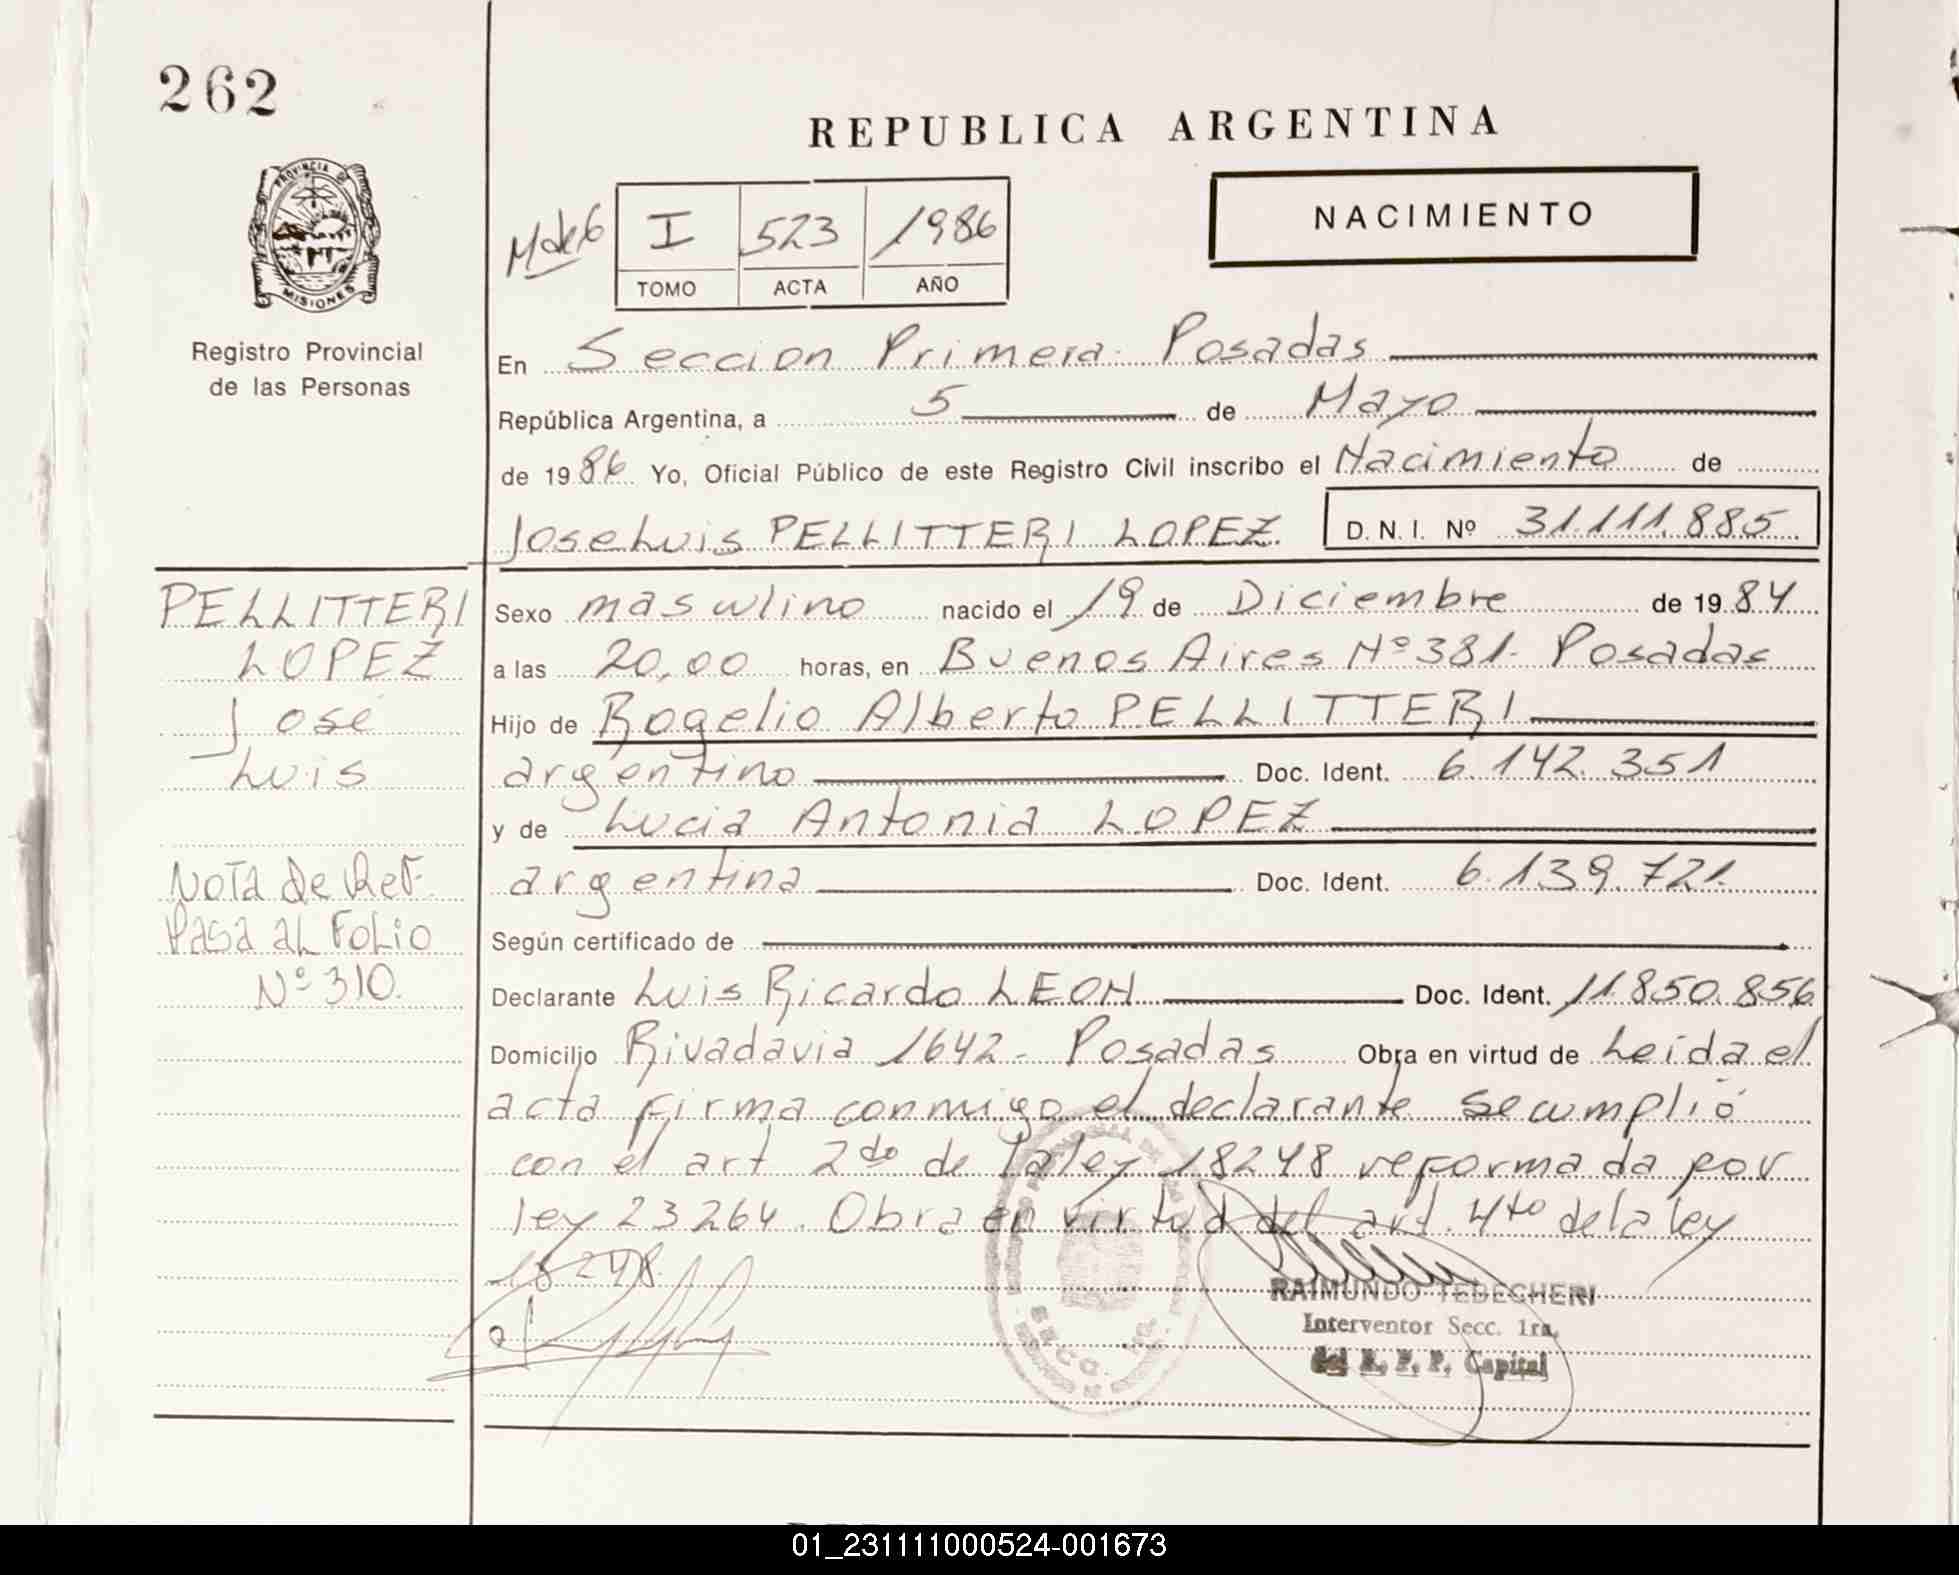 262
REPUBLICA ARGENTINA
NACIMIENTO
I 523 1986
TOMO ACTA AÑO
PROVINCIA DE
MISIONES
Registro Provincial
de las Personas
En Seccion Primera Posadas
República Argentina, a 5 de Mayo
de 1986 Yo, Oficial Público de este Registro Civil inscribo el Nacimiento de
Jose Luis PELLITTERI LOPEZ. D.N.I. Nº 31.111.885
PELLITTERI
LOPEZ
José
Luis
Nota de Ref.
Pasa al Folio
Nº 310.
Sexo masculino nacido el 19 de Diciembre de 1984
a las 20,00 horas, en Buenos Aires Nº 381. Posadas
Hijo de Rogelio Alberto PELLITTERI
argentino Doc. Ident. 6.142.351
y de Lucia Antonia LOPEZ
argentina Doc. Ident. 6.139.721.
Según certificado de
Declarante Luis Ricardo LEON Doc. Ident. 11.850.856
Domicilio Rivadavia 1642 - Posadas Obra en virtud de Leida el
acta firma conmigo el declarante se cumplió
con el art 2do de la ley 18248 reformada por
ley 23264. Obra en virtud del art. 4to de la ley
18248.
RAIMUNDO TEDECHERI
Interventor Secc. 1ra.
del R. P. P. Capital
01_231111000524-001673